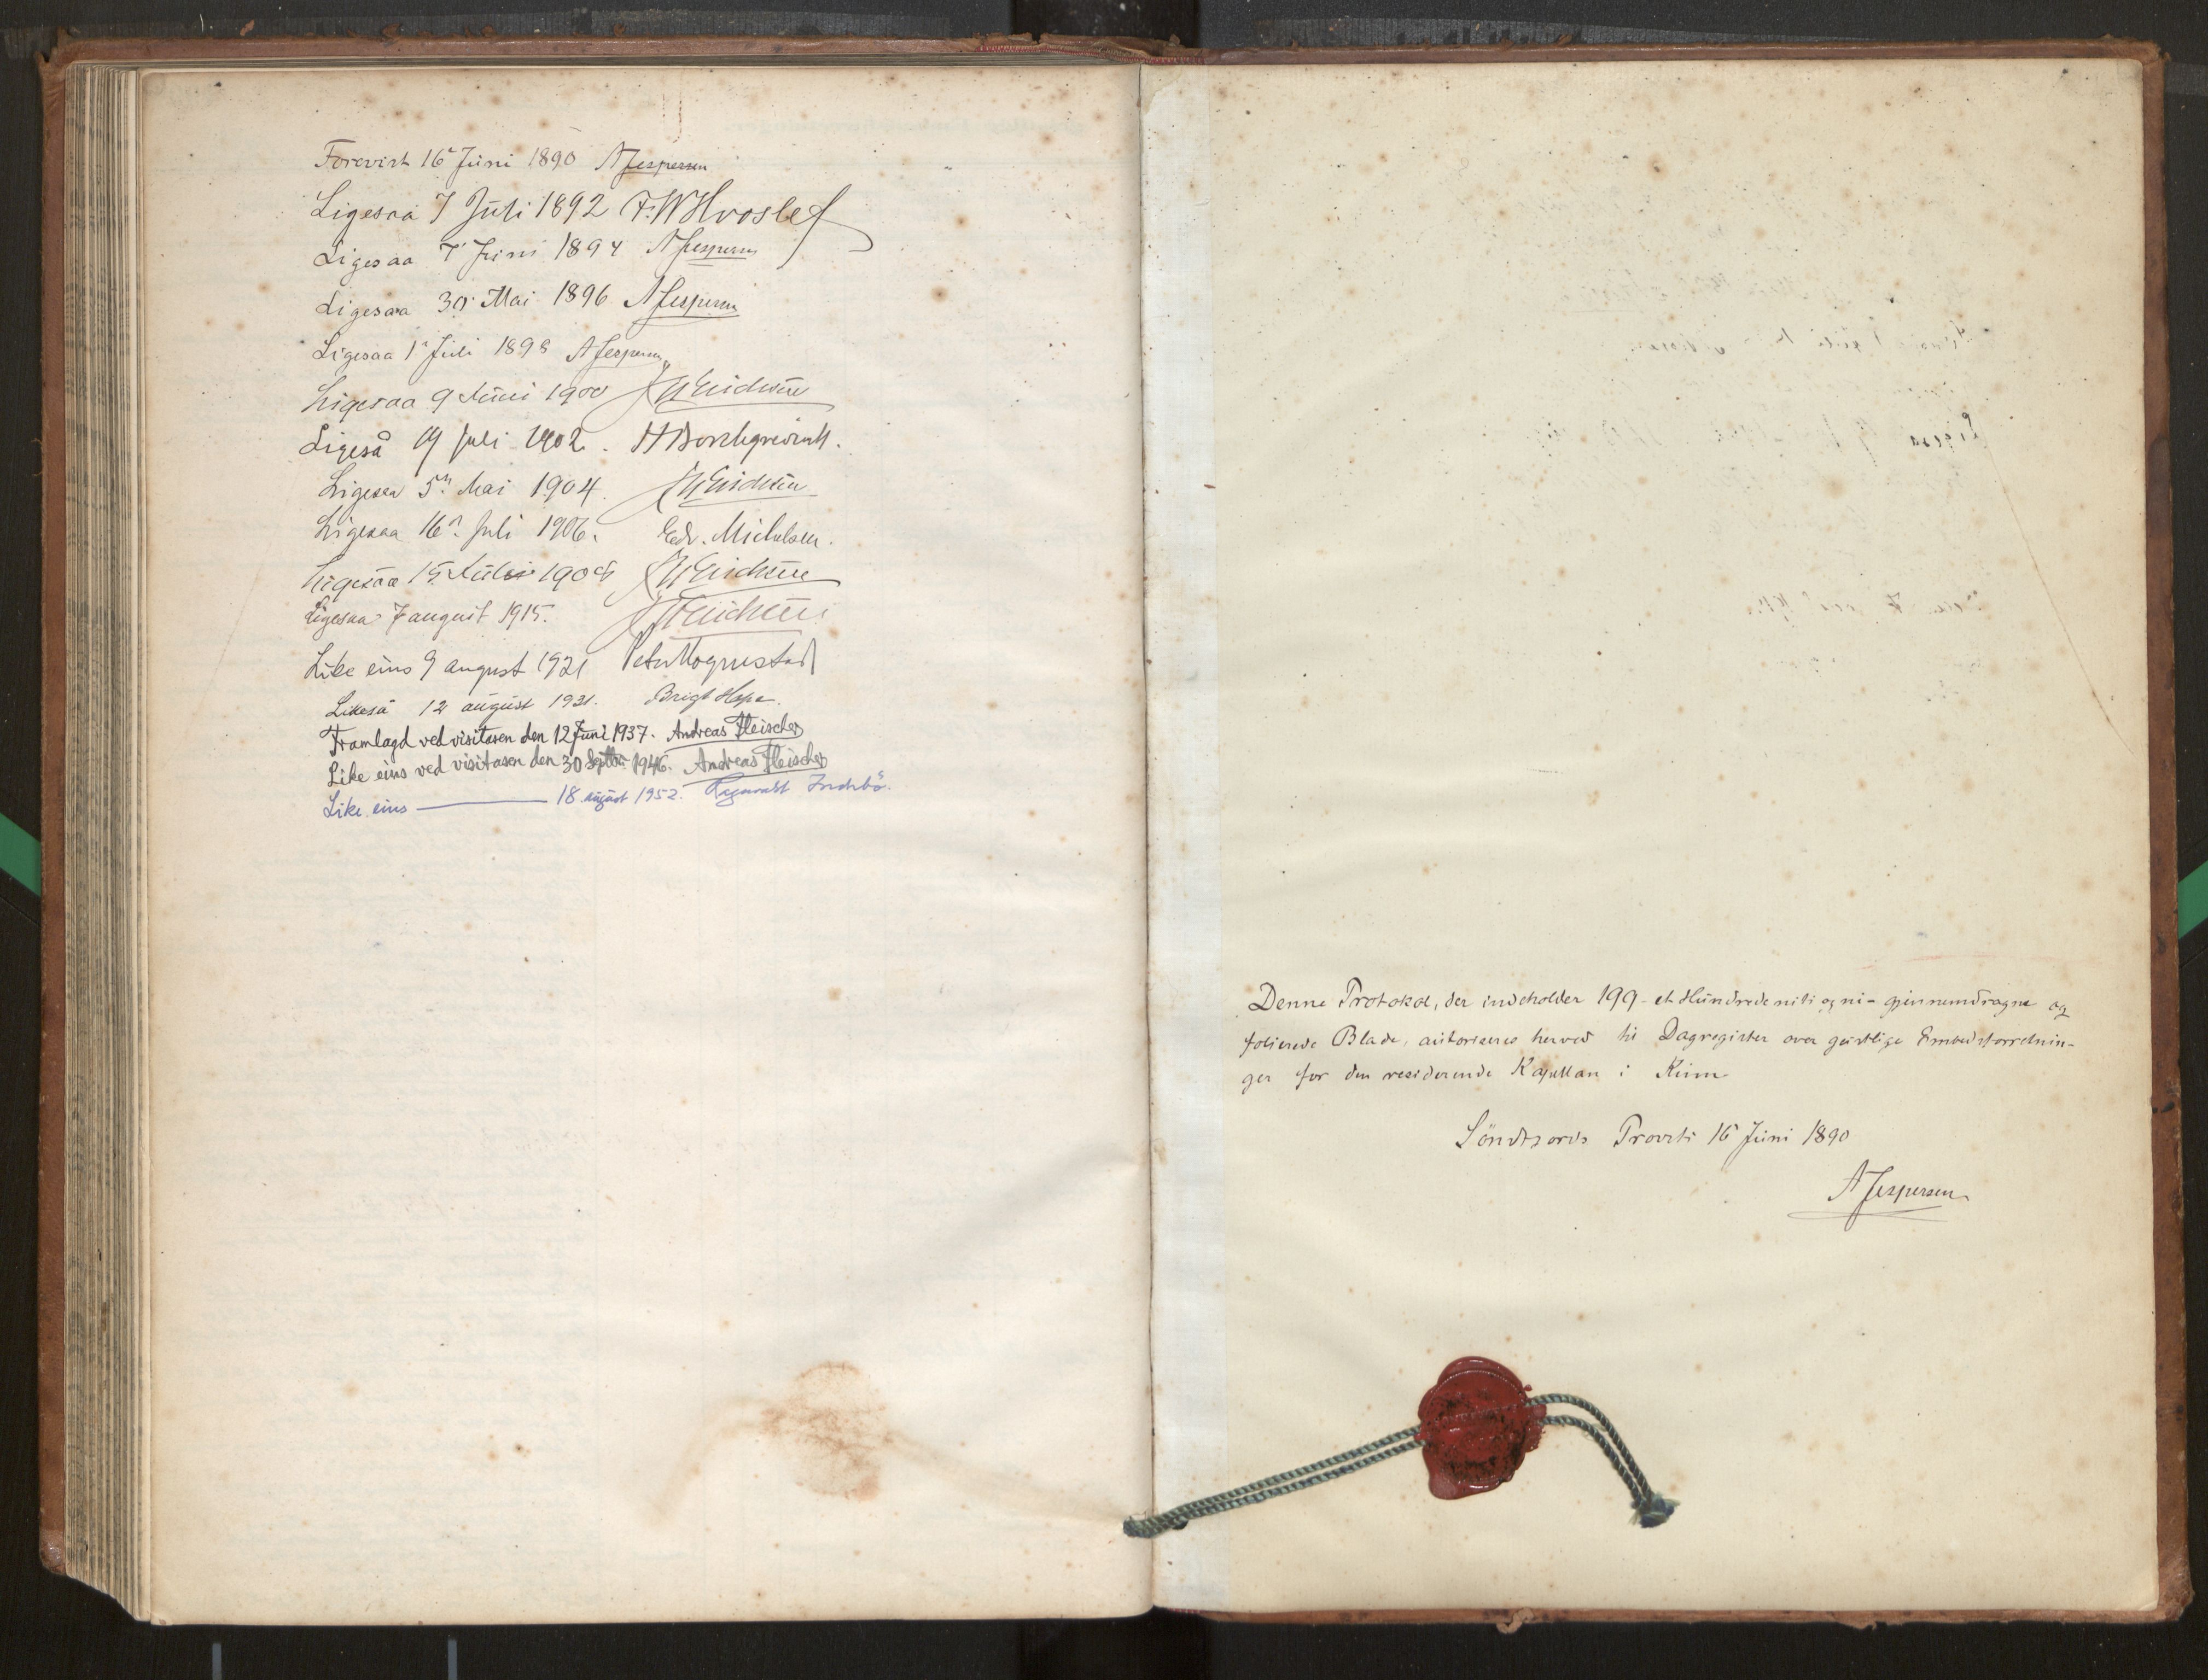 Forevist 16de Juni 1890 A Jespersen
Ligesaa 7 Juli 1892 F.W Hvoslef
Ligesaa 7' Juni 1894 A Jespersen
Ligesaa 30. Mai 1896 A Jespersen
Ligesaa 1' Juli 1898 A Jespersen
Ligesaa 9 Juni 1900
Ligeså 19 Juli 1902. H Borchgrevink.
Ligesaa 5te Mai 1904.
Ligesaa 16de Juli 1906. Edv. Michelsen.
Ligesaa 15 1908
Ligesaa 7 august 1915.
Like eins 9 august 1921 Peter Hognestad
Likeså 12 august 1931.
Framlagd ved visitasen den 12 Juni 1937. Andreas Fleischer
Like eins ved visitasen den 30 Septbr 1946. Andreas Fleischer
Like eins ——— 18. august 1952. Ragnvald Indrebö.
Denne Protokol, der indeholder 199 - et Hundrede niti og ni - gjennemdragne og
folierede Blade, autoriseres herved til Dagregister over geistlige Embedsforretnin-
ger for den residerende Kapellan i Kinn
Söndfjords Provsti 16' Juni 1890
A Jespersen